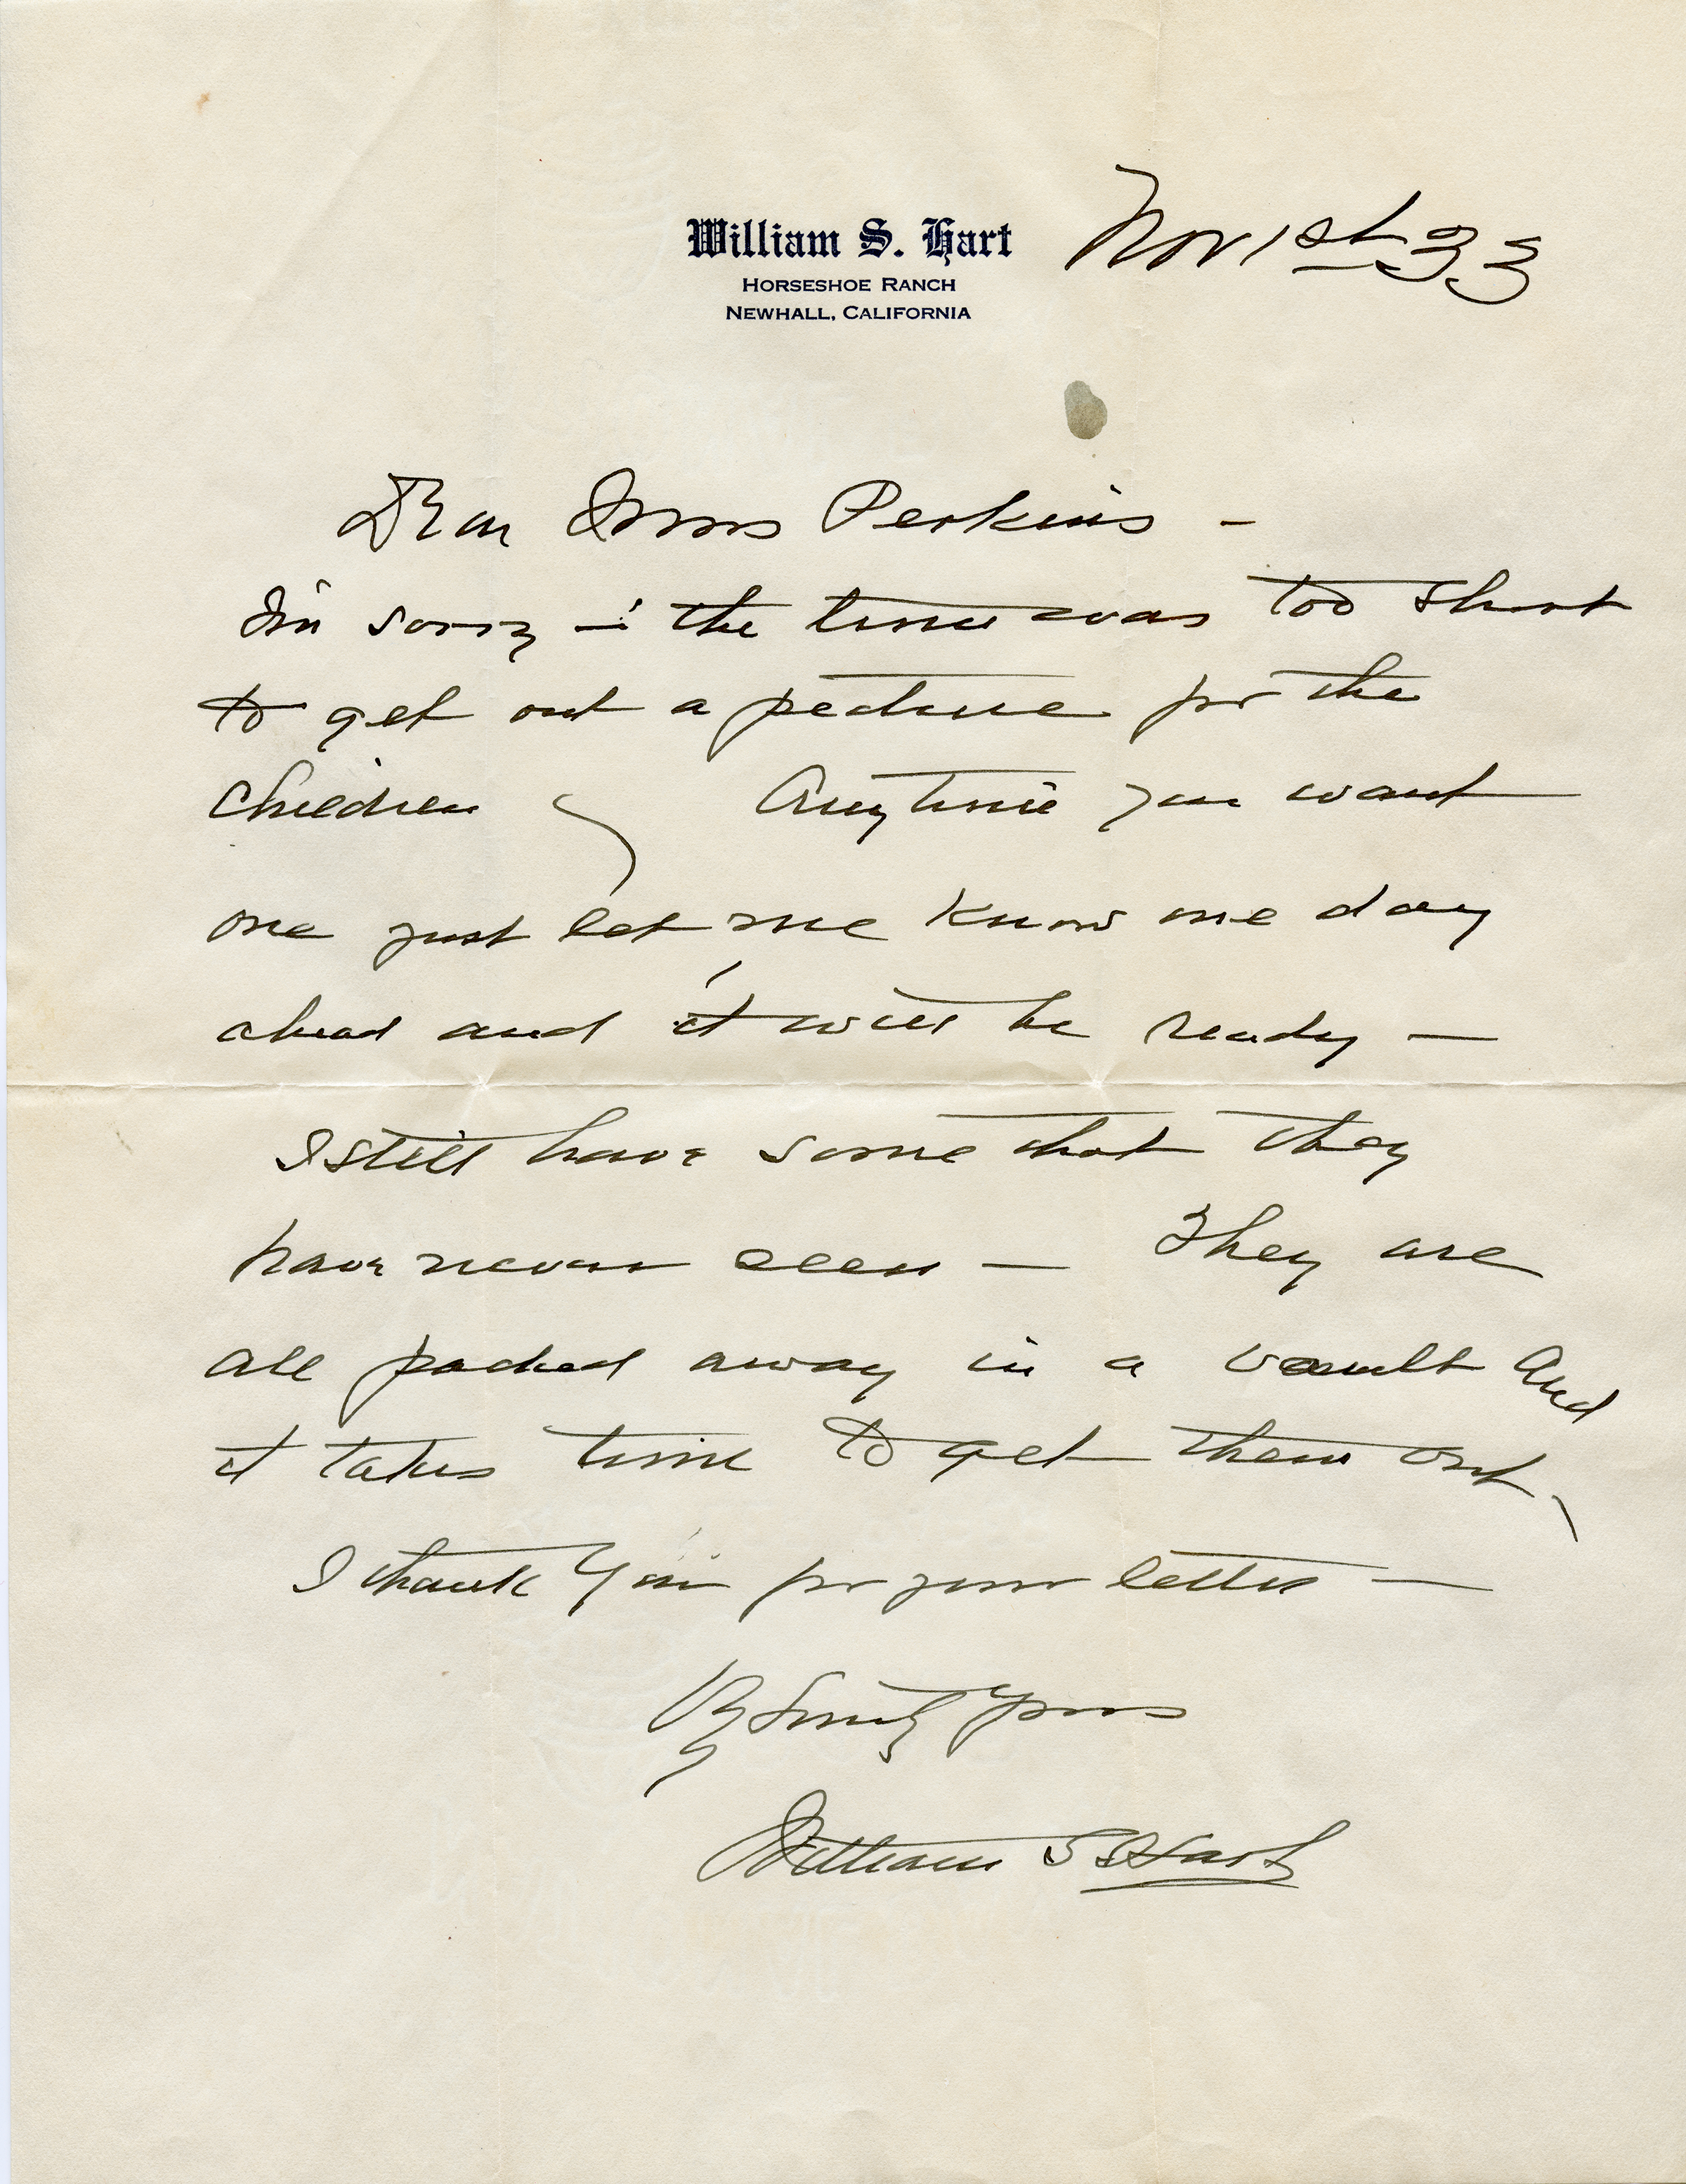 William S. Hart
HORSESHOE RANCH
NEWHALL, CALIFORNIA
Nov 1st 33
Dear Mrs Perkins -
I'm sorry - the time was too short
to get out a picture for the
children Anytime you want
one just let me know one day
ahead and it will be ready -
I still have some that they
have never seen - They are
all packed away in a vault and
it takes time to get them out.
I thank you for your letter -
Yours
William S Hart